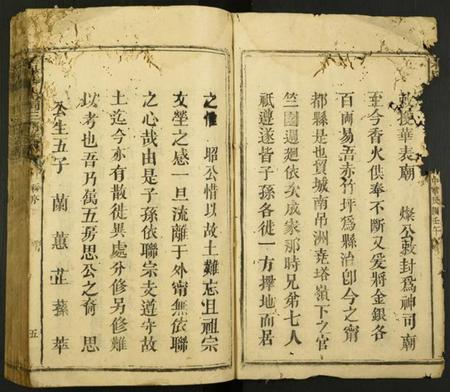 敕後華表廟 燦公敕封爲神司廟
至今香火供奉不斷又爱將金銀各
百両易吾赤竹坪爲縣治卽今之甯
都縣是也貿城南吊洲堯塔嶺下之官
竺園週廻依次成家那時兄弟七人
祇遵遂皆子孫各徙一方擇地而居
之惟 昭公惜以故土難忘且祖宗
坟塋之感一旦流離于外甯無依聯
之心哉由是子孫依聯宗支遵守故
土迄今亦有散徙異處分修另修難
以考也吾乃萬五房思公之裔 思
公生五子 蘭 蕙 芷 蓀 苹
五